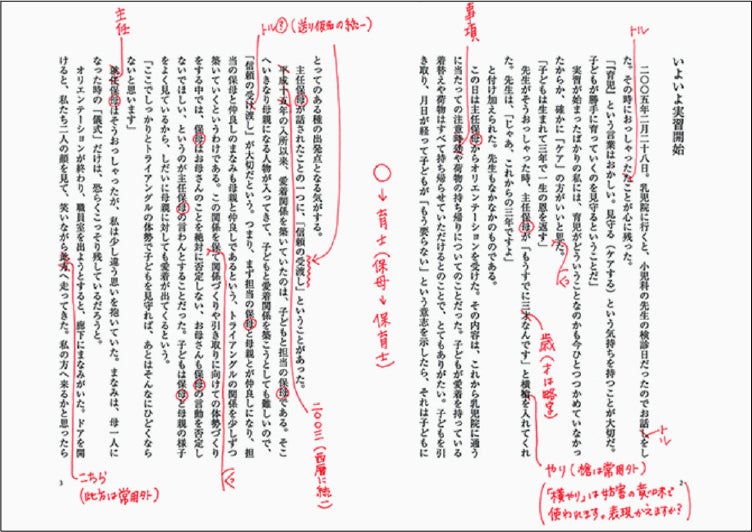 いよいよ実習開始
二〇〇五年二月二十八日。乳児院に行くと、小児科の先生の検診日だったのでお話もをし
た。その時におっしゃったなことが心に残った。
「『育児』という言葉はおかしい。見守る（ケアする）という気持ちを持つことが大切だ。
子どもが勝手に育っていくのを見守るということだ」
実習が始まったばかりの私には、育児がどういうことなのかも今ひとつつかめていなかっ
たからか、確かに「ケア」の方がいいと思た。
「子どもは生まれて三年で一生の恩を返す」
先生がそうおっしゃった時、主任保母が「もうすでに三才なんです」と横槍を入れてくれ
た。先生は、「じゃあ、これからの三年ですよ」
と付け加えられた。先生もなかなかのものである。
この日は主任保母からオリエンテーションを受けた。その内容は、これから乳児院に通う
に当たっての注意や荷物の持ち帰りについてのことだった。子どもが愛着を持っている
着替えや荷物はすべて持ち帰らせていただけるとのことで、とてもありがたい。子どもを引
き取り、月日が経って子どもが「もう要らない」という意志を示したら、それは子どもに
2
トル
トル
っ
事項
歳（才は略字）
やり（槍は常用外）
「横やり」は妨害の意味で
使われます。表現かえますか？
○→育士（保母→保育士）
とってのある種の出発点となる気がする。
主任保母が話されたことの一つに、「信頼の受渡し」ということがあった。
平成十五年の入所以来、愛着関係を築いていたのは、子どもと担当の保母である。そこ
へいきなり母親になる人物が入ってきて、子どもと愛着関係を築こうとしても難しいので、
「信頼の受け渡し」が大切だという。つまり、まず担当の保母と母親とが仲良しになり、担
当の保母と仲良しのまなみも母親と仲良しであるという、トライアングルの関係を少しずつ
築いていくというわけである。この関係を保て関係づくりや引き取りに向けての体勢づくり
をする中では、保母はお母さんのことを絶対に否定しない、お母さんも保母の言動を否定し
ないでほしい、というのが主任保母の言わんとすることだった。子どもは保母と母親の様子
をよく見ているから、しだいに母親に対しても愛着が出てくるという。
「ここでしっかりとトライアングルの体勢で子どもを見守れば、あとはそんなにひどくなら
ないと思います」
保母はそうおっしゃったが、私は少し違う思いを抱いていた。まなみは、母一人に
なった時の「儀式」だけは、恐らくこっそり残しているだろうと。
オリエンテーションが終わり、職員室を出ようとすると、廊下にまなみがいた。ドアを開
けると、私たち二人の顔を見て、笑いながら此方へ走ってきた。私の方へ来るかと思ったら
3
トル？（送り仮名の統一）
二〇〇三（西暦に統一）
っ
主任
こちら
（此方は常用外）